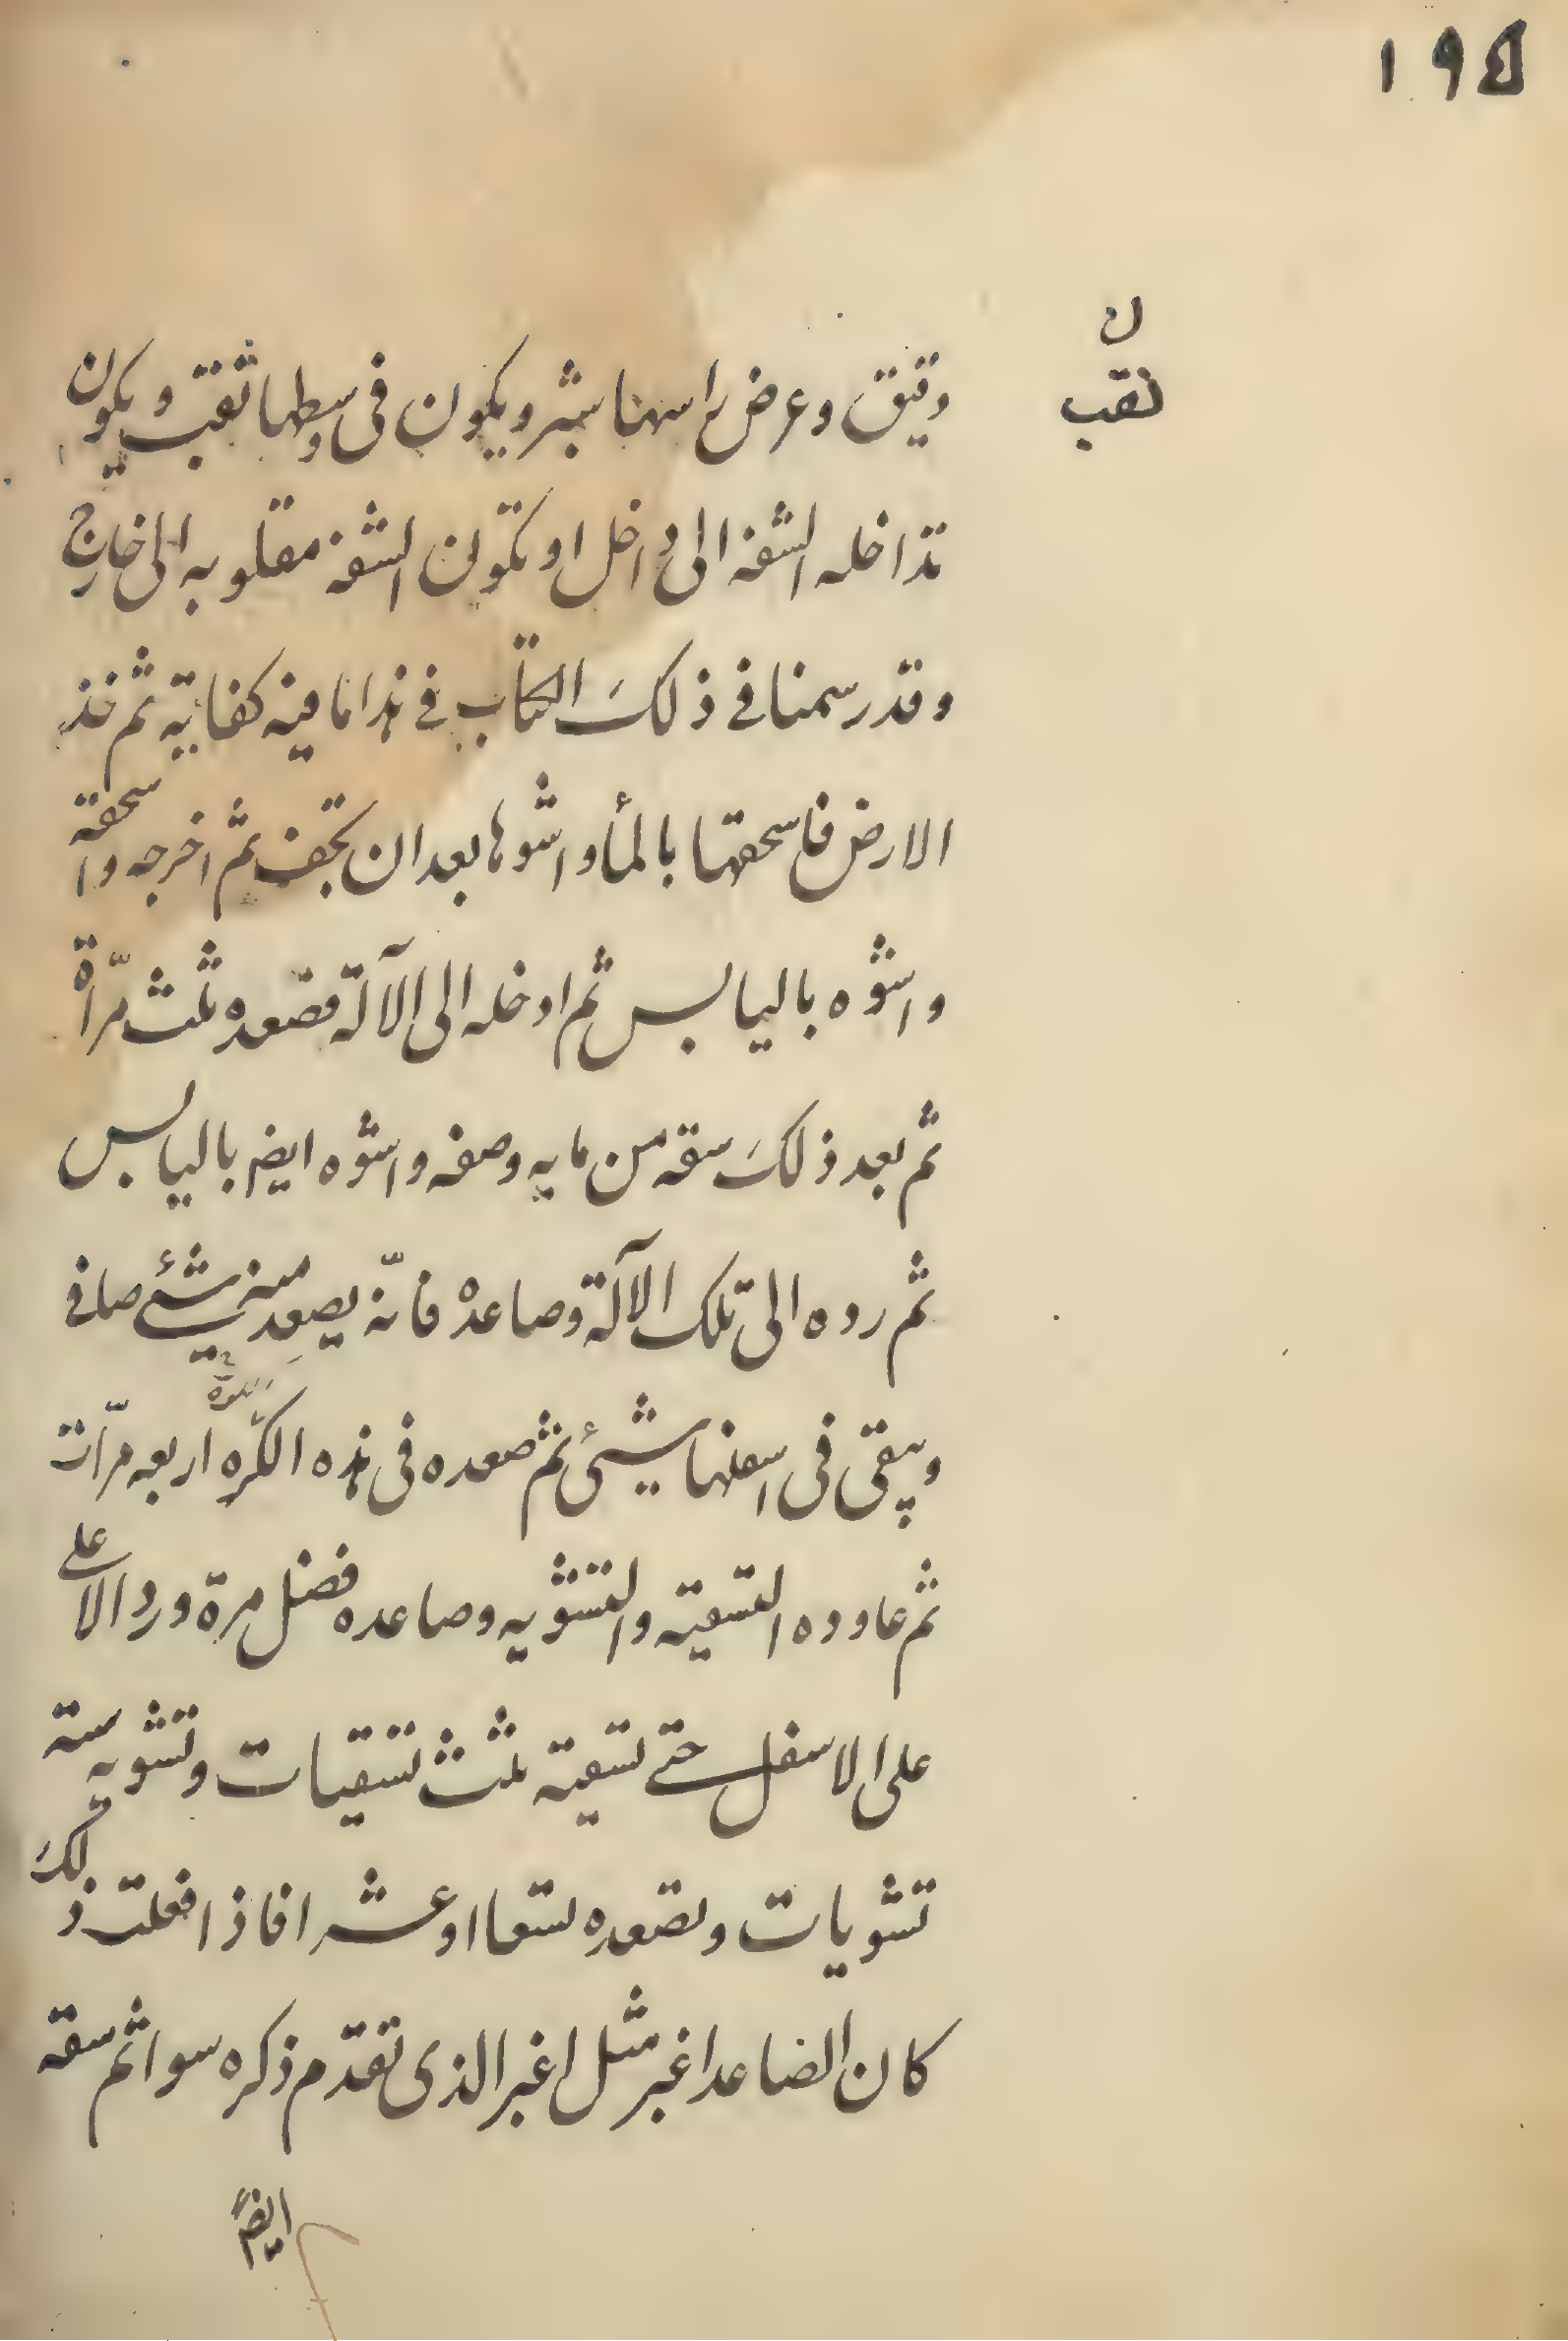 ١٩٥
ن
نقب
دقيق وعرض راسهنا شبر ويكون فى وسطها ثقب ويكون
تداخله الشفه الى داخل او تكون الشفة مقلوبه الى خارج
وقد رسمنا فى ذلك الكتاب فى هذا ما فيه كفاية ثم خذ
الارض فاسحقها بالماء واشوها بعد ان تجف ثم اخرجه واسحقه
واشوه باليابس ثم ادخله الى الآلة فصعده ثلث مرّاة
ثم بعد ذلك سقه من مايه وصفه واشوه ايض باليابس
ثم رده الى تلك الآلة وصاعده فانّه يصعد منه شئ صافى
ويبقى فى اسفلها شئ ثم صعده فى هذه الكرّه اربعه مرّات
ثم عاوده التسقيته والتشويه وصاعده فضل مرة ورد الاعلى
على الاسفل حتى تسقيته ثلث تسقيات وتشويه ستة
تشويات وتصعده تسعا او عشرا فاذا فعلت ذلك
كان الصاعد اغبر مثل اغبر الذى تقدم ذكره سوا ثم سقه
ايضً